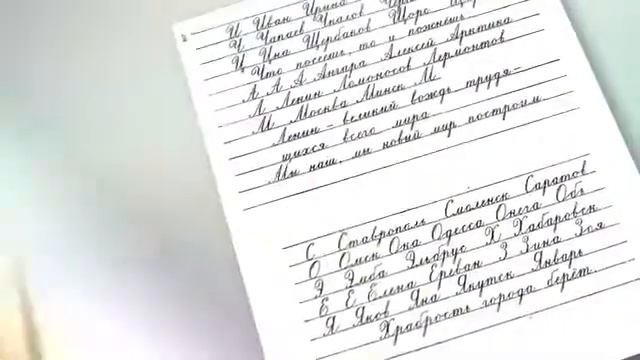 И Иван Ирина
Ч Чапаев Чкалов
Ц Цна Щербаков Щорс
Что посеешь, то и пожнёшь
А А А Ангара Алексей Арктика
Л Ленин Ломоносов Лермонтов
М Москва Минск М
Ленин - великий вождь трудя-
щихся всего мира
Мы наш, мы новый мир построим
С Ставрополь Смоленск Саратов
О Омск Она Одесса Онега Обь
Э Эмба Эльбрус Х Хабаровск
Е Е Елена Ереван З Зина Зоя
Я Яков Яна Якутск Январь
Храбрость города берёт.